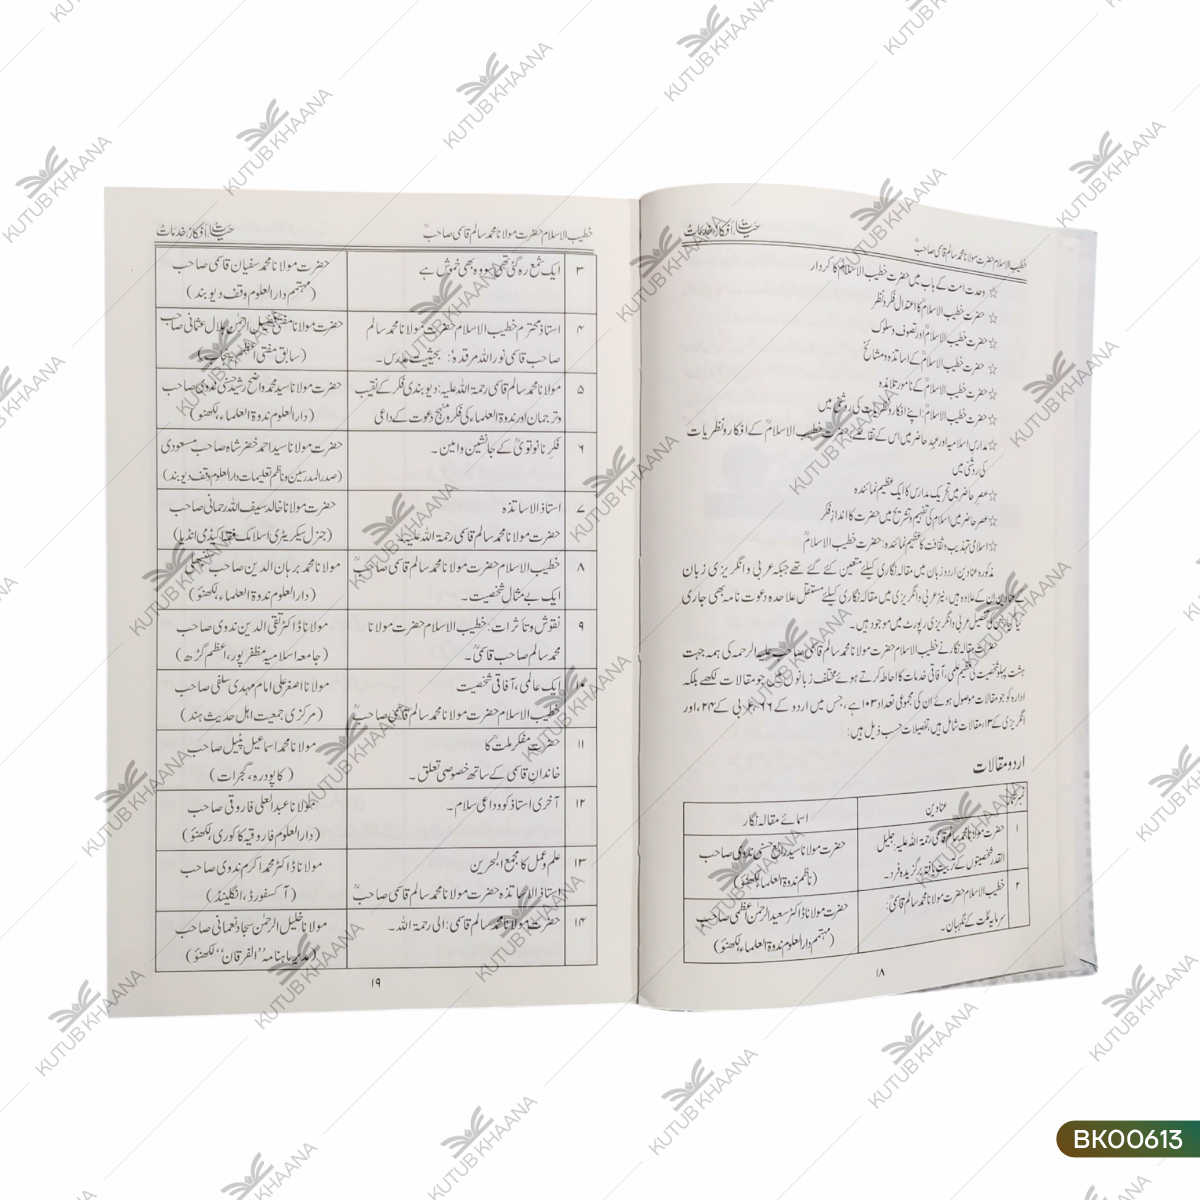 حیات، افکار، خدمات
خطیب الاسلام حضرت مولانا محمد سالم قاسمی صاحبؒ
☆ وحدت امت کے باب میں حضرت خطیب الاسلامؒ کا کردار
☆ حضرت خطیب الاسلامؒ کا اعتدال فکر و نظر
☆ حضرت خطیب الاسلامؒ اور تصوف و سلوک
☆ حضرت خطیب الاسلامؒ کے اساتذہ و مشائخ
☆ حضرت خطیب الاسلامؒ کے نامور تلامذہ
☆ حضرت خطیب الاسلامؒ: اپنے افکار و نظریات کی روشنی میں
☆ مدارس اسلامیہ اور عہد حاضر میں اس کے تقاضے: حضرت خطیب الاسلامؒ کے افکار و نظریات
کی روشنی میں
☆ عصر حاضر میں تحریک مدارس کا ایک عظیم نمائندہ
☆ عصر حاضر میں اسلام کی تفہیم و تشریح میں حضرت کا انداز فکر
☆ اسلامی تہذیب و ثقافت کا عظیم نمائندہ: حضرت خطیب الاسلامؒ
مذکورہ عناوین اردو زبان میں مقالہ نگاری کیلئے متعین کئے گئے تھے جبکہ عربی و انگریزی زبان
کے عناوین ان کے علاوہ ہیں، نیز عربی و انگریزی میں مقالہ نگاری کیلئے مستقل علاحدہ دعوت نامہ بھی جاری
کیا گیا، جن کی تفصیل عربی و انگریزی رپورٹ میں موجود ہیں۔
حضرات مقالہ نگار نے خطیب الاسلام حضرت مولانا محمد سالم قاسمی صاحب علیہ الرحمہ کی ہمہ جہت
ہشت پہلو شخصیت کی عظیم علمی، آفاقی خدمات کا احاطہ کرتے ہوئے مختلف زبانوں میں جو مقالات لکھے بلکہ
ادارہ کو جو مقالات موصول ہوئے ان کی مجموعی تعداد ۱۰۳ ہے، جس میں اردو کے ۶۶، عربی کے ۲۴، اور
انگریزی کے ۱۳، مقالات شامل ہیں، تفصیلات حسب ذیل ہیں:
اردو مقالات
نمبر شمار عناوین اسمائے مقالہ نگار
۱ حضرت مولانا محمد سالم قاسمی رحمۃ اللہ علیہ: جلیل حضرت مولانا سید رابع حسنی ندوی صاحب
القدر شخصیتوں کے تربیت یافتہ برگزیدہ فرد۔ (ناظم ندوۃ العلماء لکھنؤ)
۲ خطیب الاسلام حضرت مولانا محمد سالم قاسمیؒ: حضرت مولانا ڈاکٹر سعید الرحمن اعظمی صاحب
سرمایہ ملت کے نگہبان۔ (مہتمم دارالعلوم ندوۃ العلماء لکھنؤ)
۱۸
خطیب الاسلام حضرت مولانا محمد سالم قاسمی صاحبؒ
حیات، افکار، خدمات
۳ ایک شمع رہ گئی تھی سو وہ بھی خموش ہے حضرت مولانا محمد سفیان قاسمی صاحب
(مہتمم دارالعلوم وقف دیوبند)
۴ استاذ محترم خطیب الاسلام حضرت مولانا محمد سالم حضرت مولانا مفتی فضیل الرحمن ہلال عثمانی صاحب
صاحب قاسمی نور اللہ مرقدہ: بحیثیت مدرس۔ (سابق مفتی اعظم پنجاب)
۵ مولانا محمد سالم قاسمی رحمۃ اللہ علیہ: دیوبندی فکر کے نقیب حضرت مولانا سید محمد واضح رشید حسنی ندوی صاحب
و ترجمان اور ندوۃ العلماء کی فکر و منہج دعوت کے داعی (دارالعلوم ندوۃ العلماء، لکھنؤ)
۶ فکر نانوتویؒ کے جانشین و امین۔ حضرت مولانا سید احمد خضر شاہ صاحب مسعودی
(صدر المدرسین و ناظم تعلیمات دارالعلوم وقف دیوبند)
۷ استاذ الاساتذہ حضرت مولانا خالد سیف اللہ رحمانی صاحب
حضرت مولانا محمد سالم قاسمی رحمۃ اللہ علیہ (جنرل سیکریٹری اسلامک فقہ اکیڈمی انڈیا)
۸ خطیب الاسلام حضرت مولانا محمد سالم قاسمی صاحبؒ مولانا محمد برہان الدین صاحب سنبھلی
ایک بے مثال شخصیت۔ (دارالعلوم ندوۃ العلماء، لکھنؤ)
۹ نقوش و تأثرات: خطیب الاسلام حضرت مولانا مولانا ڈاکٹر تقی الدین ندوی صاحب
محمد سالم صاحب قاسمیؒ۔ (جامعہ اسلامیہ مظفر پور، اعظم گڑھ)
۱۰ ایک عالمی، آفاقی شخصیت مولانا اصغر علی امام مہدی سلفی صاحب
خطیب الاسلام حضرت مولانا محمد سالم قاسمی صاحبؒ (مرکزی جمعیت اہل حدیث ہند)
۱۱ حضرت مفکر ملتؒ کا مولانا محمد اسماعیل پٹیل صاحب
خاندان قاسمی کے ساتھ خصوصی تعلق۔ (کاپودرہ، گجرات)
۱۲ آخری استاذ کو وداعی سلام۔ مولانا عبد العلی فاروقی صاحب
(دارالعلوم فاروقیہ کاکوری، لکھنؤ)
۱۳ علم و عمل کا مجمع البحرین مولانا ڈاکٹر محمد اکرم ندوی صاحب
استاذ الاساتذہ حضرت مولانا محمد سالم قاسمی صاحبؒ (آکسفورڈ، انگلینڈ)
۱۴ حضرت مولانا محمد سالم قاسمی: الی رحمۃ اللہ۔ مولانا خلیل الرحمن سجاد نعمانی صاحب
(مدیر ماہنامہ "الفرقان" لکھنؤ)
۱۹
KUTUB KHAANA
BK00613